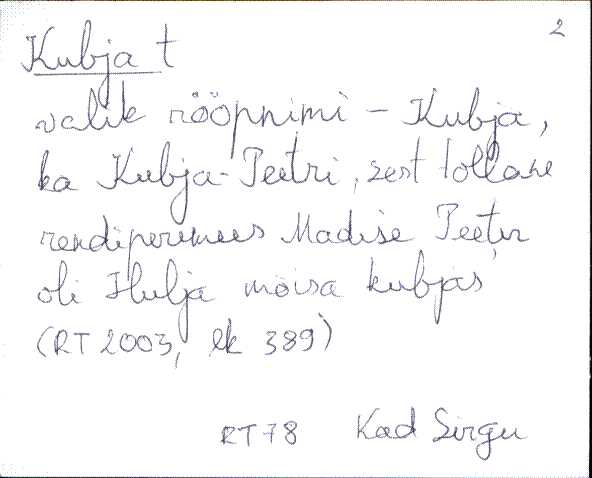 2
Kubja t
valik rööpnimi – Kubja,
ka Kubja-Peetri, sest tollane
rendiperemees Madise Peeter
oli Hulja mõisa kubjas
(RT 2003, lk 389)
RT 78 Kad Sirgu